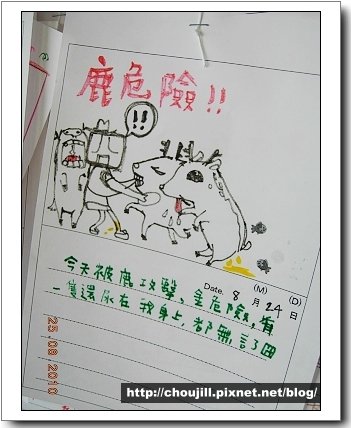 鹿危險!!
!!
(M) (D)
Date. 8 月 24 日
今天被鹿攻擊,金危險,有
一隻還尿在我身上,都無言了囧
25.08.2010
http://choujill.pixnet.net/blog/